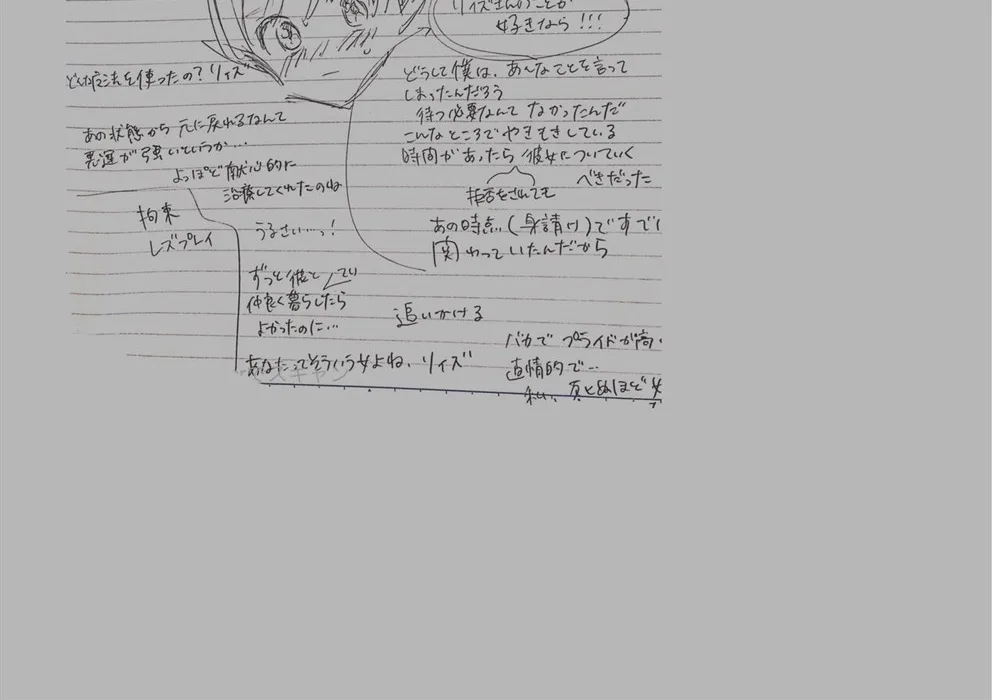 リィズさんのことが
好きなら!!!
どんな症法を使ったの?リィズ
どうして僕は、あんなことを言って
しまったんだろう
待つ必要なんてなかったんだ
こんなところでやきもきしている
時間があったら彼女についていく
べきだった
拒否をされても
あの時点(身請け)ですでに
関わっていたんだから
あの状態から元に戻れるなんて
悪運が強いというか…
よっぽど献心的に
治療してくれたのね
拘束
レズプレイ
うるさい…っ!
ずっと彼と
仲良く暮らしてい
たらよかったのに…
追いかける
あなたってそういう女よね、リィズ
バカでプライドが高い
直情的で…